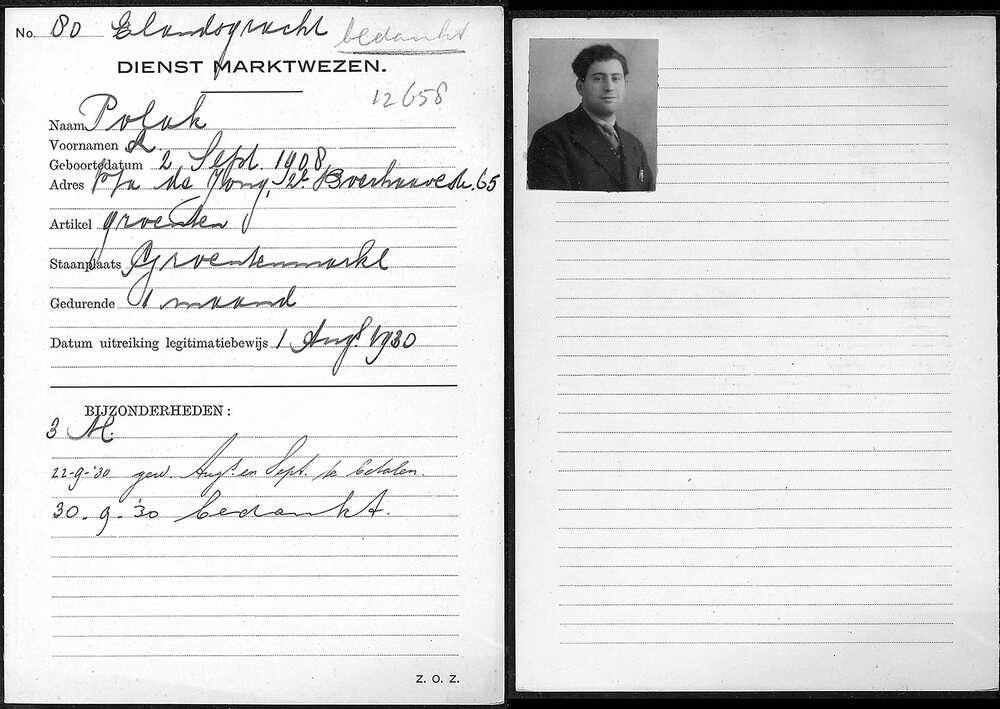 No. 80 Elandsgracht bedankt
DIENST MARKTWEZEN.
12658
Naam Polak
Voornamen L.
Geboortedatum 2 Sept. 1908
Adres p/a de Jong, 2e Boerhaavestr. 65
Artikel groenten
Staanplaats Groentenmarkt
Gedurende 1 maand
Datum uitreiking legitimatiebewijs 1 Augs. 1930
BIJZONDERHEDEN:
3 M.
22-9-'30 gew. Augs. en Sept. te betalen.
30-9-'30 bedankt.
Z. O. Z.